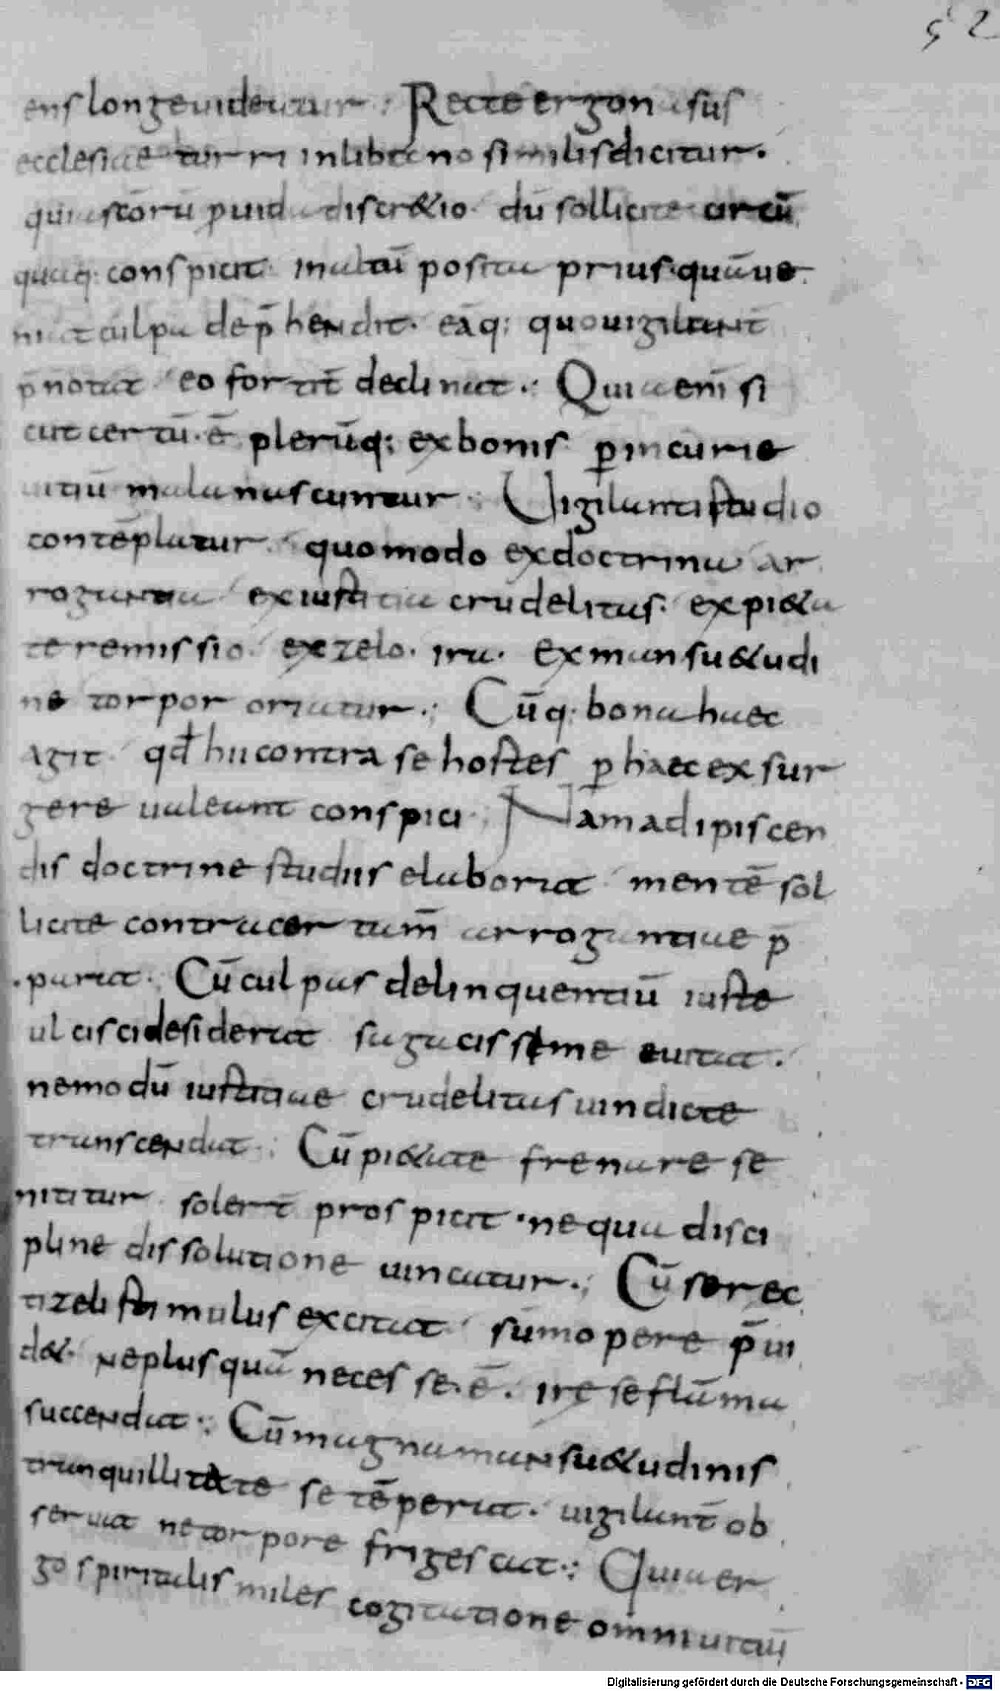 52
ens longe videtur ·: Recte ergo nasus
ecclesiae turri in libano similis dicitur.
quia scōrū ꝓuida discr&io dū sollicite circū
quaq: conspicit in altū posita prius quā ve
niat culpa dep̄hendit. eāq: quo vigilant̄
p̄notat eo fortit̄ declinat ·: Quia enī si
cut certū · ē plerūq: ex bonis p̱ incuriae
vitiū mala nascuntur ·: Vigilanti studio
contēplatur quomodo ex doctrina ar
rogantia ex iustitia crudelitas. ex pi&a
te remissio. ex zelo. ira. Ex mansu&udi
ne torpor oriatur ·; Cūq: bona haec
agit qđ hii contra se hostes p̱ haec exsur
gere valeant conspicit ·; Nam adipiscen
dis doctrine studiis elaborat mentē sol
licite contra certam̄ arrogantiae p̄
parat ·; Cū culpas delinquentiū iuste
ulcisci desiderat sagacissime evitat.
ne modū iustitiae crudelitas vindicte
transcendat ·: Cū pi&ate frenare se
nititur solert̄ prospicit · ne qua disci
pline dissolutione vincatur ·; Cū se rec
ti zeli stimulus excitat sūmopere p̄vi
d& ne plus quā necesse · ē · ire se flāma
succendat ·: Cū magna mansu&udinis
tranquillitate se tēperat. vigilant̄ ob
servat ne torpore frigescat ·: Quia er
go spiritalis miles cogitatione omni vitiū
Digitalisierung gefördert durch die Deutsche Forschungsgemeinschaft · DFG